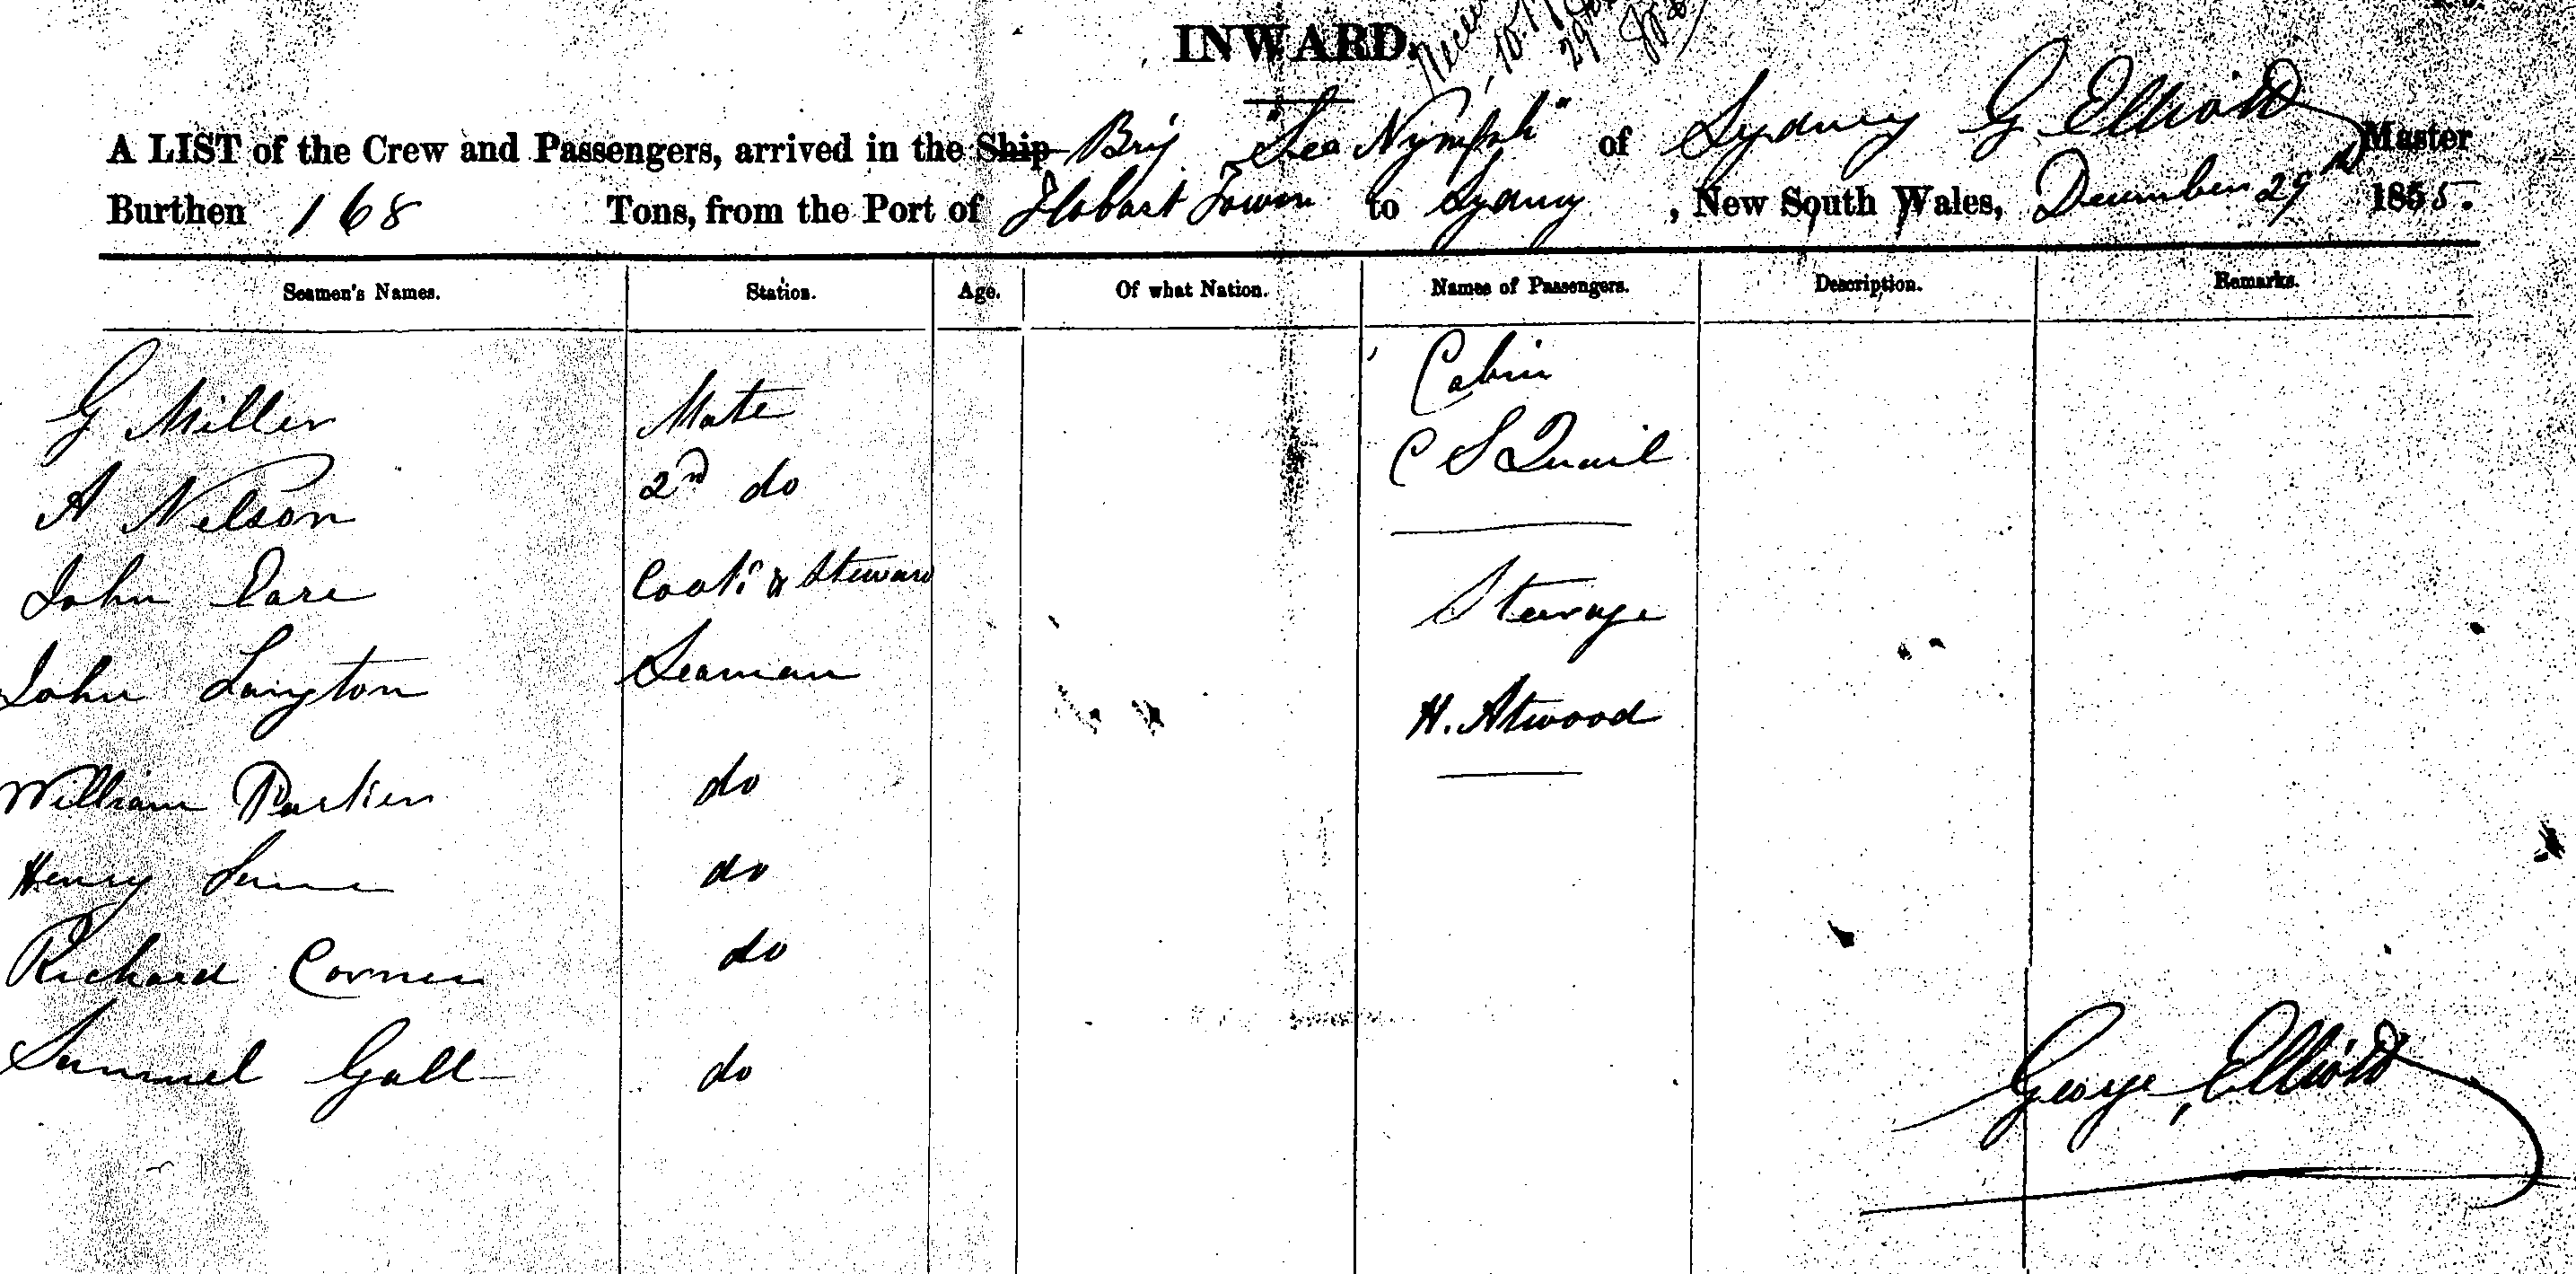 INWARD.
10.
29
A LIST of the Crew and Passengers, arrived in the Ship Brig "Sea Nymph" of Sydney G Elliott Master
Burthen 168 Tons, from the Port of Hobart Town to Sydney, New South Wales, December 29th 1855.
Seamen's Names. Station. Age. Of what Nation. Names of Passengers. Description. Remarks.
Cabin
G Miller Mate
C S Quail
A Nelson 2nd do
John Cook & Steward
Steerage
John Langton Seaman
H. Atwood
William Parker do
Henry do
Richard do
Samuel Gall do
George Elliott